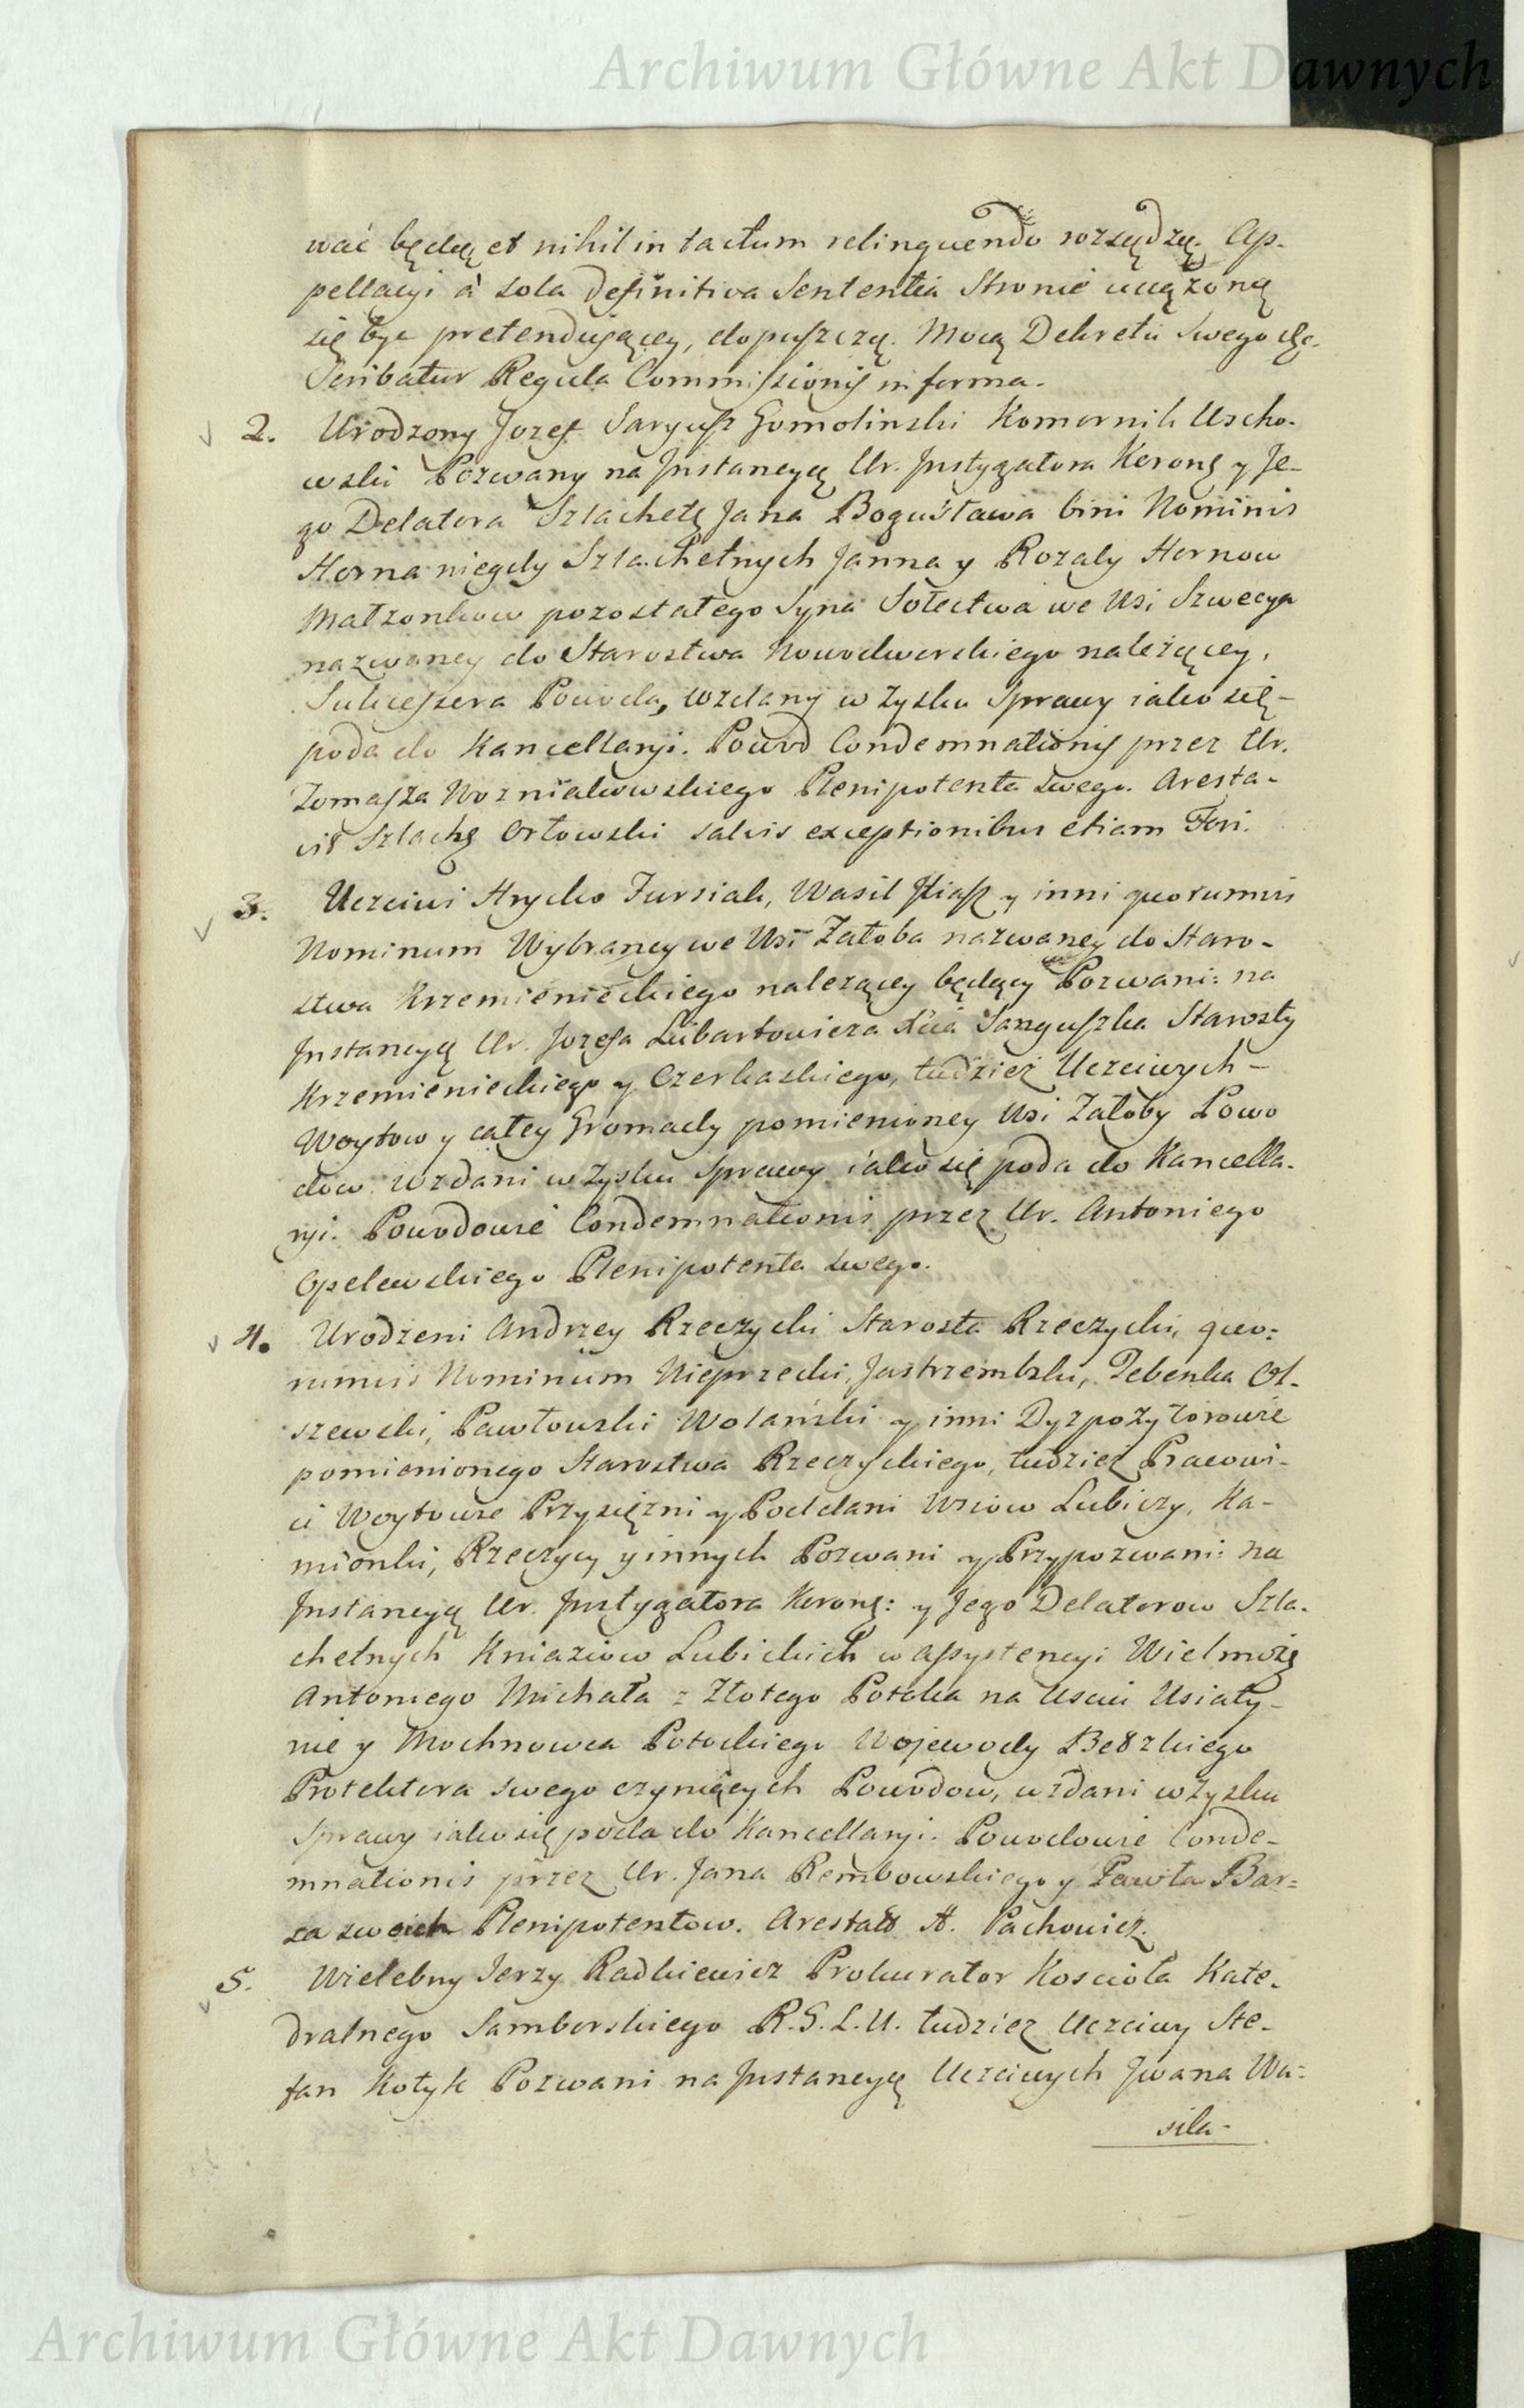 Archiwum Główne Akt Dawnych
wać będą et nihil in tactum relinquendo rozsądzą. Ap-
pellacyi à sola Definitiva Sententia Stronie uciążoną
się byc pretendującey, dopuszczą. Mocą Dekretu Swego etc.
Scribatur Regula Commissionis in forma.
2. Urodzony Jozef Saryusz Gomolinski Komornik Uscho-
wski Pozwany na Instancyą Ur. Instygatora Koronę y Je-
go Delatora Szlachetę Jana Bogusława bini Nominis
Horna niegdy Szlachetnych Janna y Rozaly Hornow
Małzonkow pozostałego Syna Sołectwa we Wsi Szwecya
nazwaney do Starostwa Nowodworskiego należącey,
Sukcessora Powoda, wzdany w Zysku Sprawy iako się
poda do Kancellaryi. Powod Condemnationis przez Ur.
Tomasza Wozniakowskiego Plenipotenta swego. Aresta-
vit Szlachę Orłowski salvis exceptionibus etiam Fori.
3. Uczciwi Hrycko Fursiak, Wasil y inni quorumvis
Nominum Wybrancy we Wsi Załoba nazwaney do Staro-
stwa Krzemienieckiego nalezącey będący Pozwani: na
Instancyą Ur. Jozefa Lubartowicza Xcia Sanguszka Starosty
Krzemienieckiego y Czerkaskiego, tudzież Uczciwych
Woytow y całey Gromady pomienioney Wsi Załoby Powo
dow. wzdani w Zysku Sprawy iako się poda do Kancella-
ryi. Powodowie Condemnationis przez Ur. Antoniego
Opelewskiego Plenipotenta swego.
4. Urodzeni Andrzey Rzeczycki Starosta Rzeczycki, quo-
rumvis Nominum Nieprzecki, Jastrzembski, Tebenka Ol-
szewski, Pawłowski Wolański y inni Dyzpozytorowie
pomienionego Starostwa Rzeczyckiego, tudzież Pracowi-
ci Woytowie Przysiężni y Poddani Wsiow Lubiczy, Ka-
mionki, Rzeczycy y innych Pozwani y Przypozwani: na
Instancyą Ur. Instygatora Koronę: y Jego Delatorow Szla-
chetnych Kniaziow Lubickich w assystencyi Wielmożę
Antoniego Michała z Złotego Potoka na Usciu Usiaty-
nie y Mochnowca Potockiego Wojewody Bełzkiego
Protektora swego czyniących Powodow, wzdani w Zysku
Sprawy iako się poda do Kancellaryi. Powodowie Conde-
mnationis przez Ur. Jana Rembowskiego y Pawła Bar-
sa swoich Plenipotentow. Arestavit A. Pachowicz.
5. Wielebny Jerzy Radkiewicz Prokurator Kościoła Kate-
dralnego Samborskiego R.G.L.U. tudzież Uczciwy Ste-
fan Kotyk Pozwani na Instancyą Uczciwych Jwana Wa-
sila-
Archiwum Główne Akt Dawnych